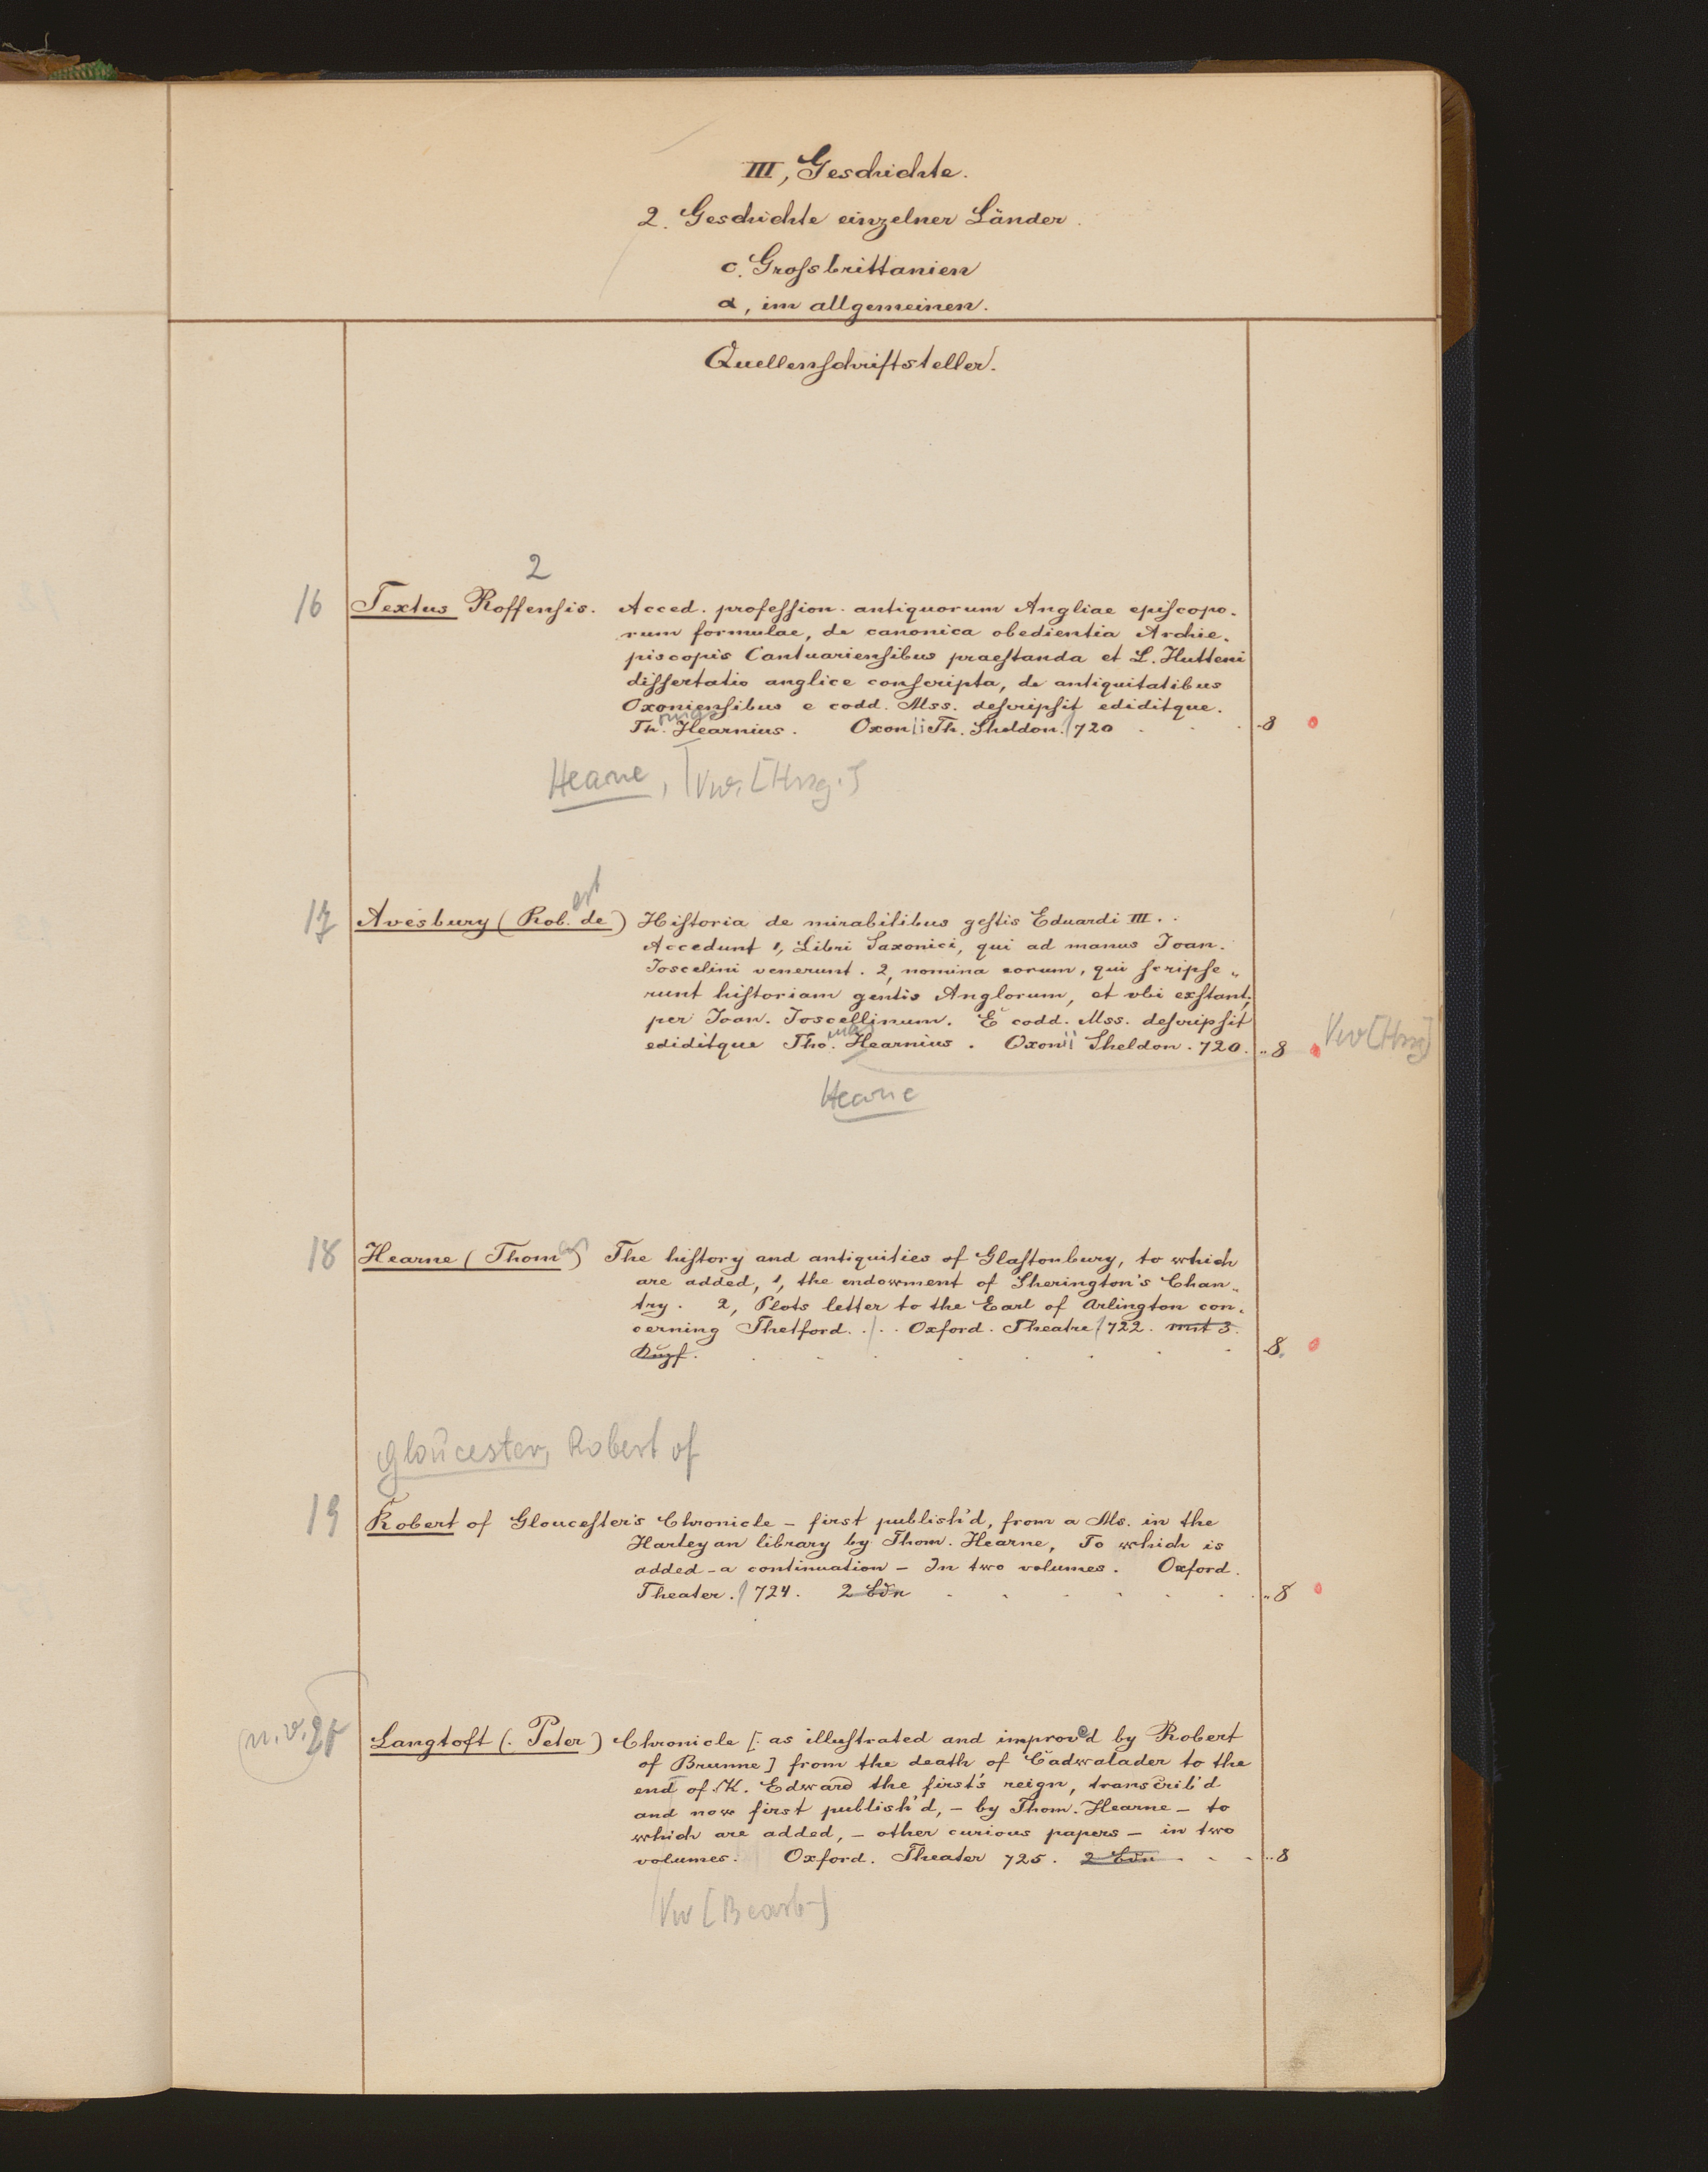 III, Geschichte.
2. Geschichte einzelner Länder.
c. Grossbrittanien
α, im allgemeinen.
Quellenschriftsteller.
2
16 Textus Roffensis. Acced. profession. antiquorum Angliae episcopo-
rum formulae, de canonica obedientia Archie-
piscopis Cantuariensibus praestanda et L. Hutteni
dissertatio anglice conscripta, de antiquitatibus
Oxoniensibus e codd. Mss. descripsit ediditque.
Th. Hearnius. Oxonii Th. Sheldon. 720 . . . 8
Hearne, Vw. [Hrsg.]
17 Avesbury (Rob. de) Historia de mirabilibus gestis Eduardi III. .
ert
Accedunt 1, Libri Saxonici, qui ad manus Joan.
Joscelini venerunt. 2, nomina eorum, qui scripse-
runt historiam gentis Anglorum, et vbi exstant,
per Joan. Joscellinum. E codd. Mss. descripsit
ediditque Tho. Hearnius. Oxonii Sheldon. 720. .. 8 Vw [Hrsg]
Hearne
18 Hearne (Thomas) The history and antiquities of Glastonbury, to which
are added, 1, the endowment of Sherington's Chan-
try. 2, Plots letter to the Earl of Arlington con-
cerning Thetford. . . . Oxford. Theatre 722. mit 3.
Kupf. . . . . . . . 8.
Gloucester, Robert of
19 Robert of Gloucester's Chronicle – first publish'd, from a Ms. in the
Harleyan library by Thom. Hearne, To which is
added – a continuation – In two volumes. Oxford.
Theater. 724. 2 Bdn . . . . . . .. 8
(n. v. 25 Langtoft (. Peter) Chronicle [: as illustrated and improved by Robert
of Brunne] from the death of Cadwalader to the
end of K. Edward the first's reign, transcrib'd
and now first publish'd, – by Thom. Hearne – to
which are added, – other curious papers – in two
volumes. Oxford. Theater 725. 2 Bdn . . . .. 8
Vw [Bearb.]